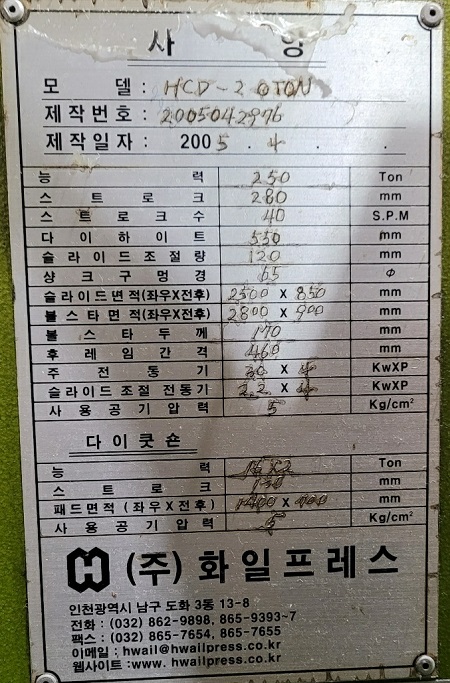 사 양
모 델 : HCD-2 0TON
제작번호 : 2005042976
제작일자 : 2005 . 4 . .
능 력 250 Ton
스 트 로 크 280 mm
스 트 로 크 수 40 S.P.M
다 이 하 이 트 550 mm
슬라이드조절량 120 mm
샹 크 구 멍 경 65 Φ
슬라이드면적(좌우X전후) 2500 X 850 mm
볼스타면적(좌우X전후) 2800 X 900 mm
볼 스 타 두 께 170 mm
후 레 임 간 격 460 mm
주 전 동 기 30 X 4 KwXP
슬라이드 조절 전동기 2.2 X 4 KwXP
사 용 공 기 압 력 5 Kg/cm²
다이쿳숀
능 력 16 X2 Ton
스 트 로 크 130 mm
패드면적 (좌우X전후) 1400 X mm
사 용 공 기 압 력 5 Kg/cm²
(주) 화일프레스
인천광역시 남구 도화 3동 13-8
전화 : (032) 862-9898, 865-9393~7
팩스 : (032) 865-7654, 865-7655
이메일 : hwail@hwailpress.co.kr
웹사이트 :www. hwailpress.co.kr